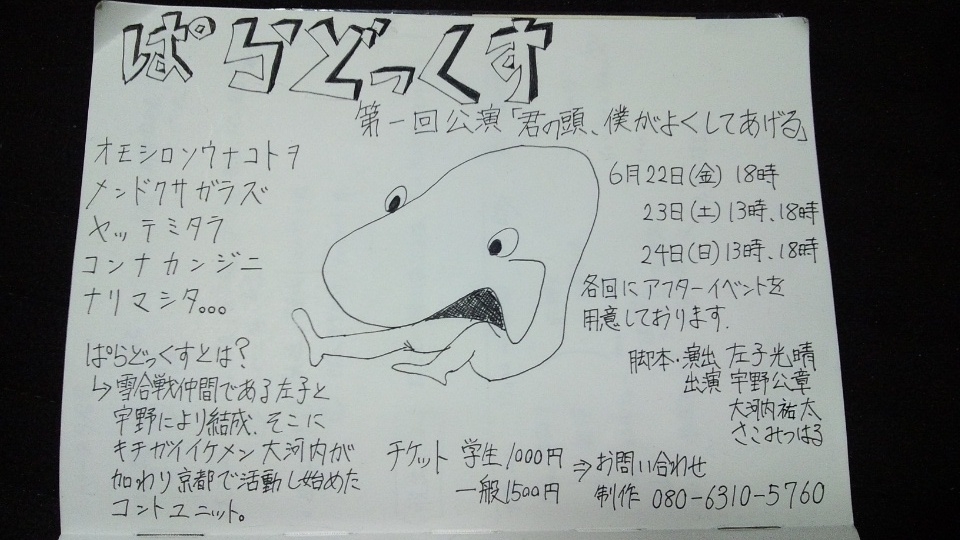 ぱらどっくす
第一回公演「君の頭、僕がよくしてあげる」
オモシロソウナコトヲ
メンドクサガラズ
ヤッテミタラ
コンナカンジニ
ナリマシタ。。。
6月22日(金) 18時
23日(土) 13時、18時
24日(日) 13時、18時
各回にアフターイベントを
用意しております.
脚本・演出 左子光晴
出演 宇野公章
大河内祐太
さこみつはる
ぱらどっくすとは?
↳雪合戦仲間である左子と
宇野により結成、そこに
キチガイイケメン大河内が
加わり京都で活動し始めた
コントユニット。
チケット 学生1000円
一般1500円
⇒お問い合わせ
制作 080-6310-5760